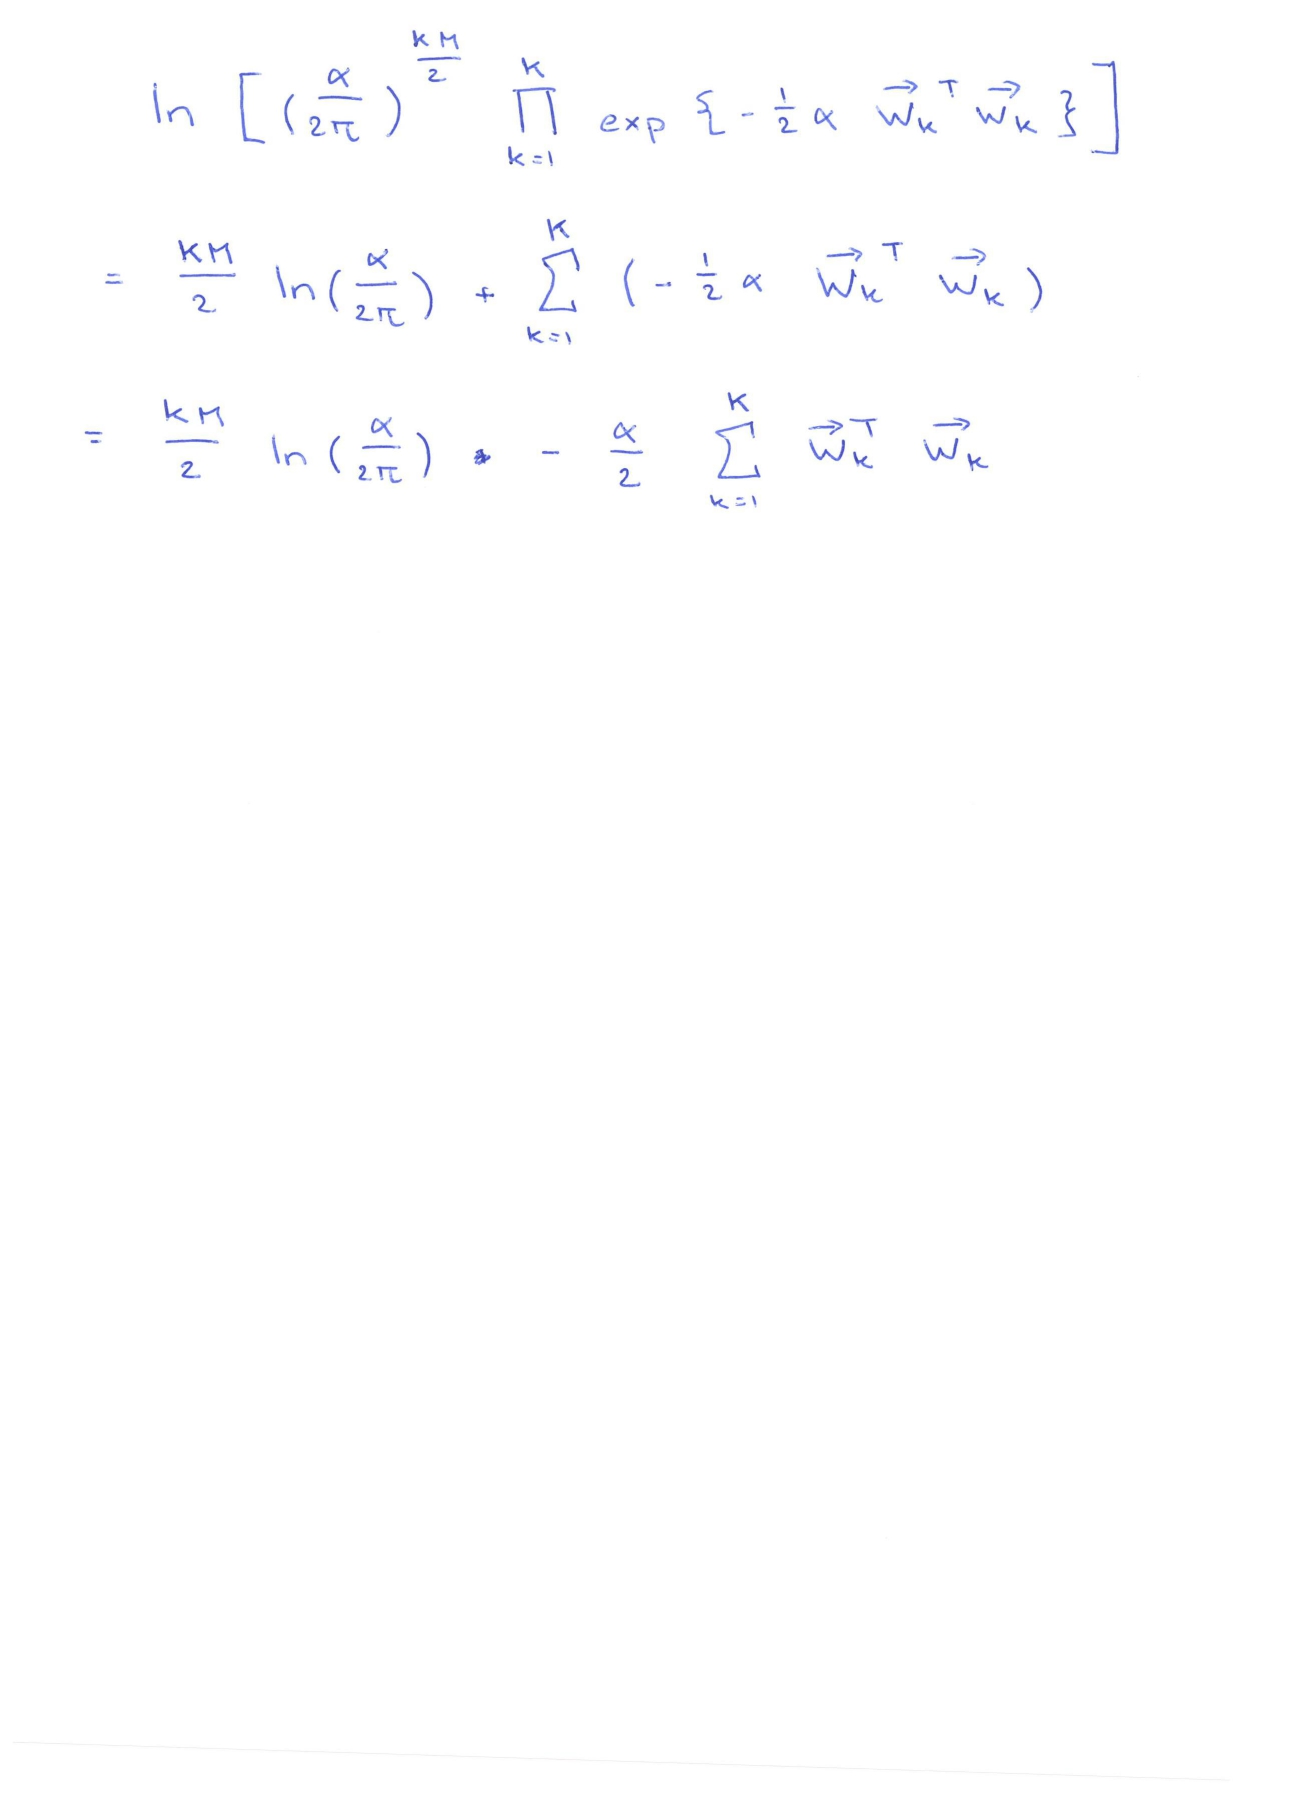 ln [ (α/2π)^(KM/2) ∏_{k=1}^{K} exp {- 1/2 α w⃗_k^T w⃗_k } ]
= KM/2 ln(α/2π) + ∑_{k=1}^{K} (- 1/2 α w⃗_k^T w⃗_k )
= KM/2 ln(α/2π) - α/2 ∑_{k=1}^{K} w⃗_k^T w⃗_k